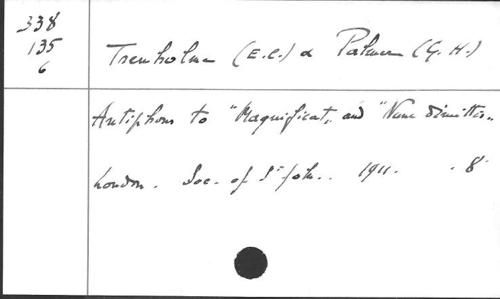 338
135
6
Trenholme (E.C.) & Palmer (G.H.)
Antiphons to "Magnificat", and "Nunc dimittis".
London. Soc. of St John. 1911. 8°